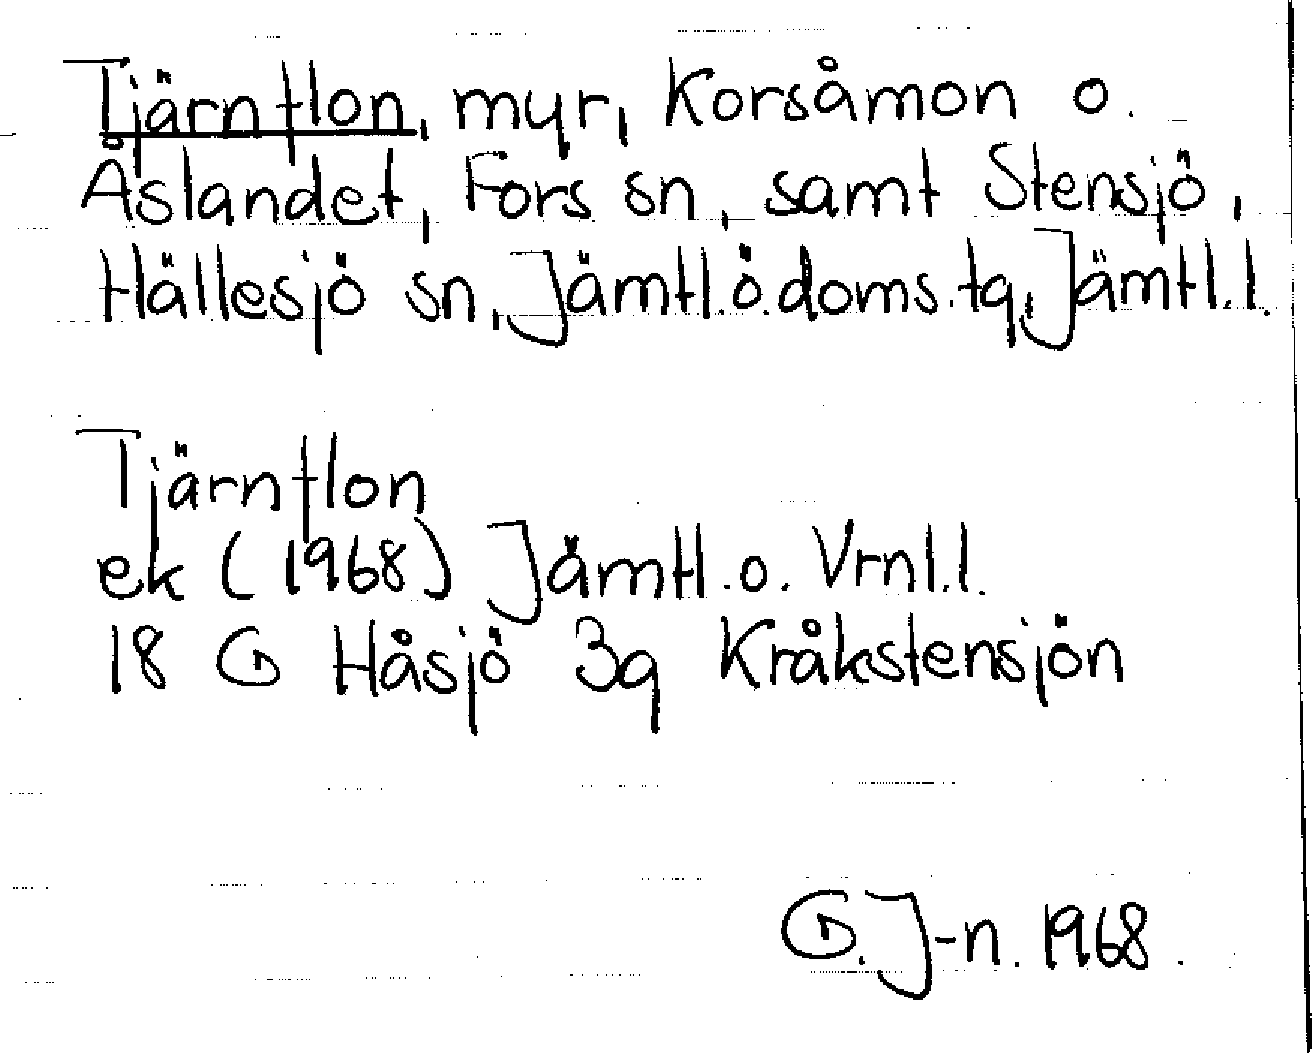 Tjärnflon, myr, Korsåmon o.
Åslandet, Fors sn, samt Stensjö,
Hällesjö sn, Jämtl.ö.doms.tg, Jämtl.l.
Tjärnflon
ek (1968) Jämtl.o. Vrnl.l.
18 G Håsjö 3g Kråkstensjön
G.J-n. 1968.